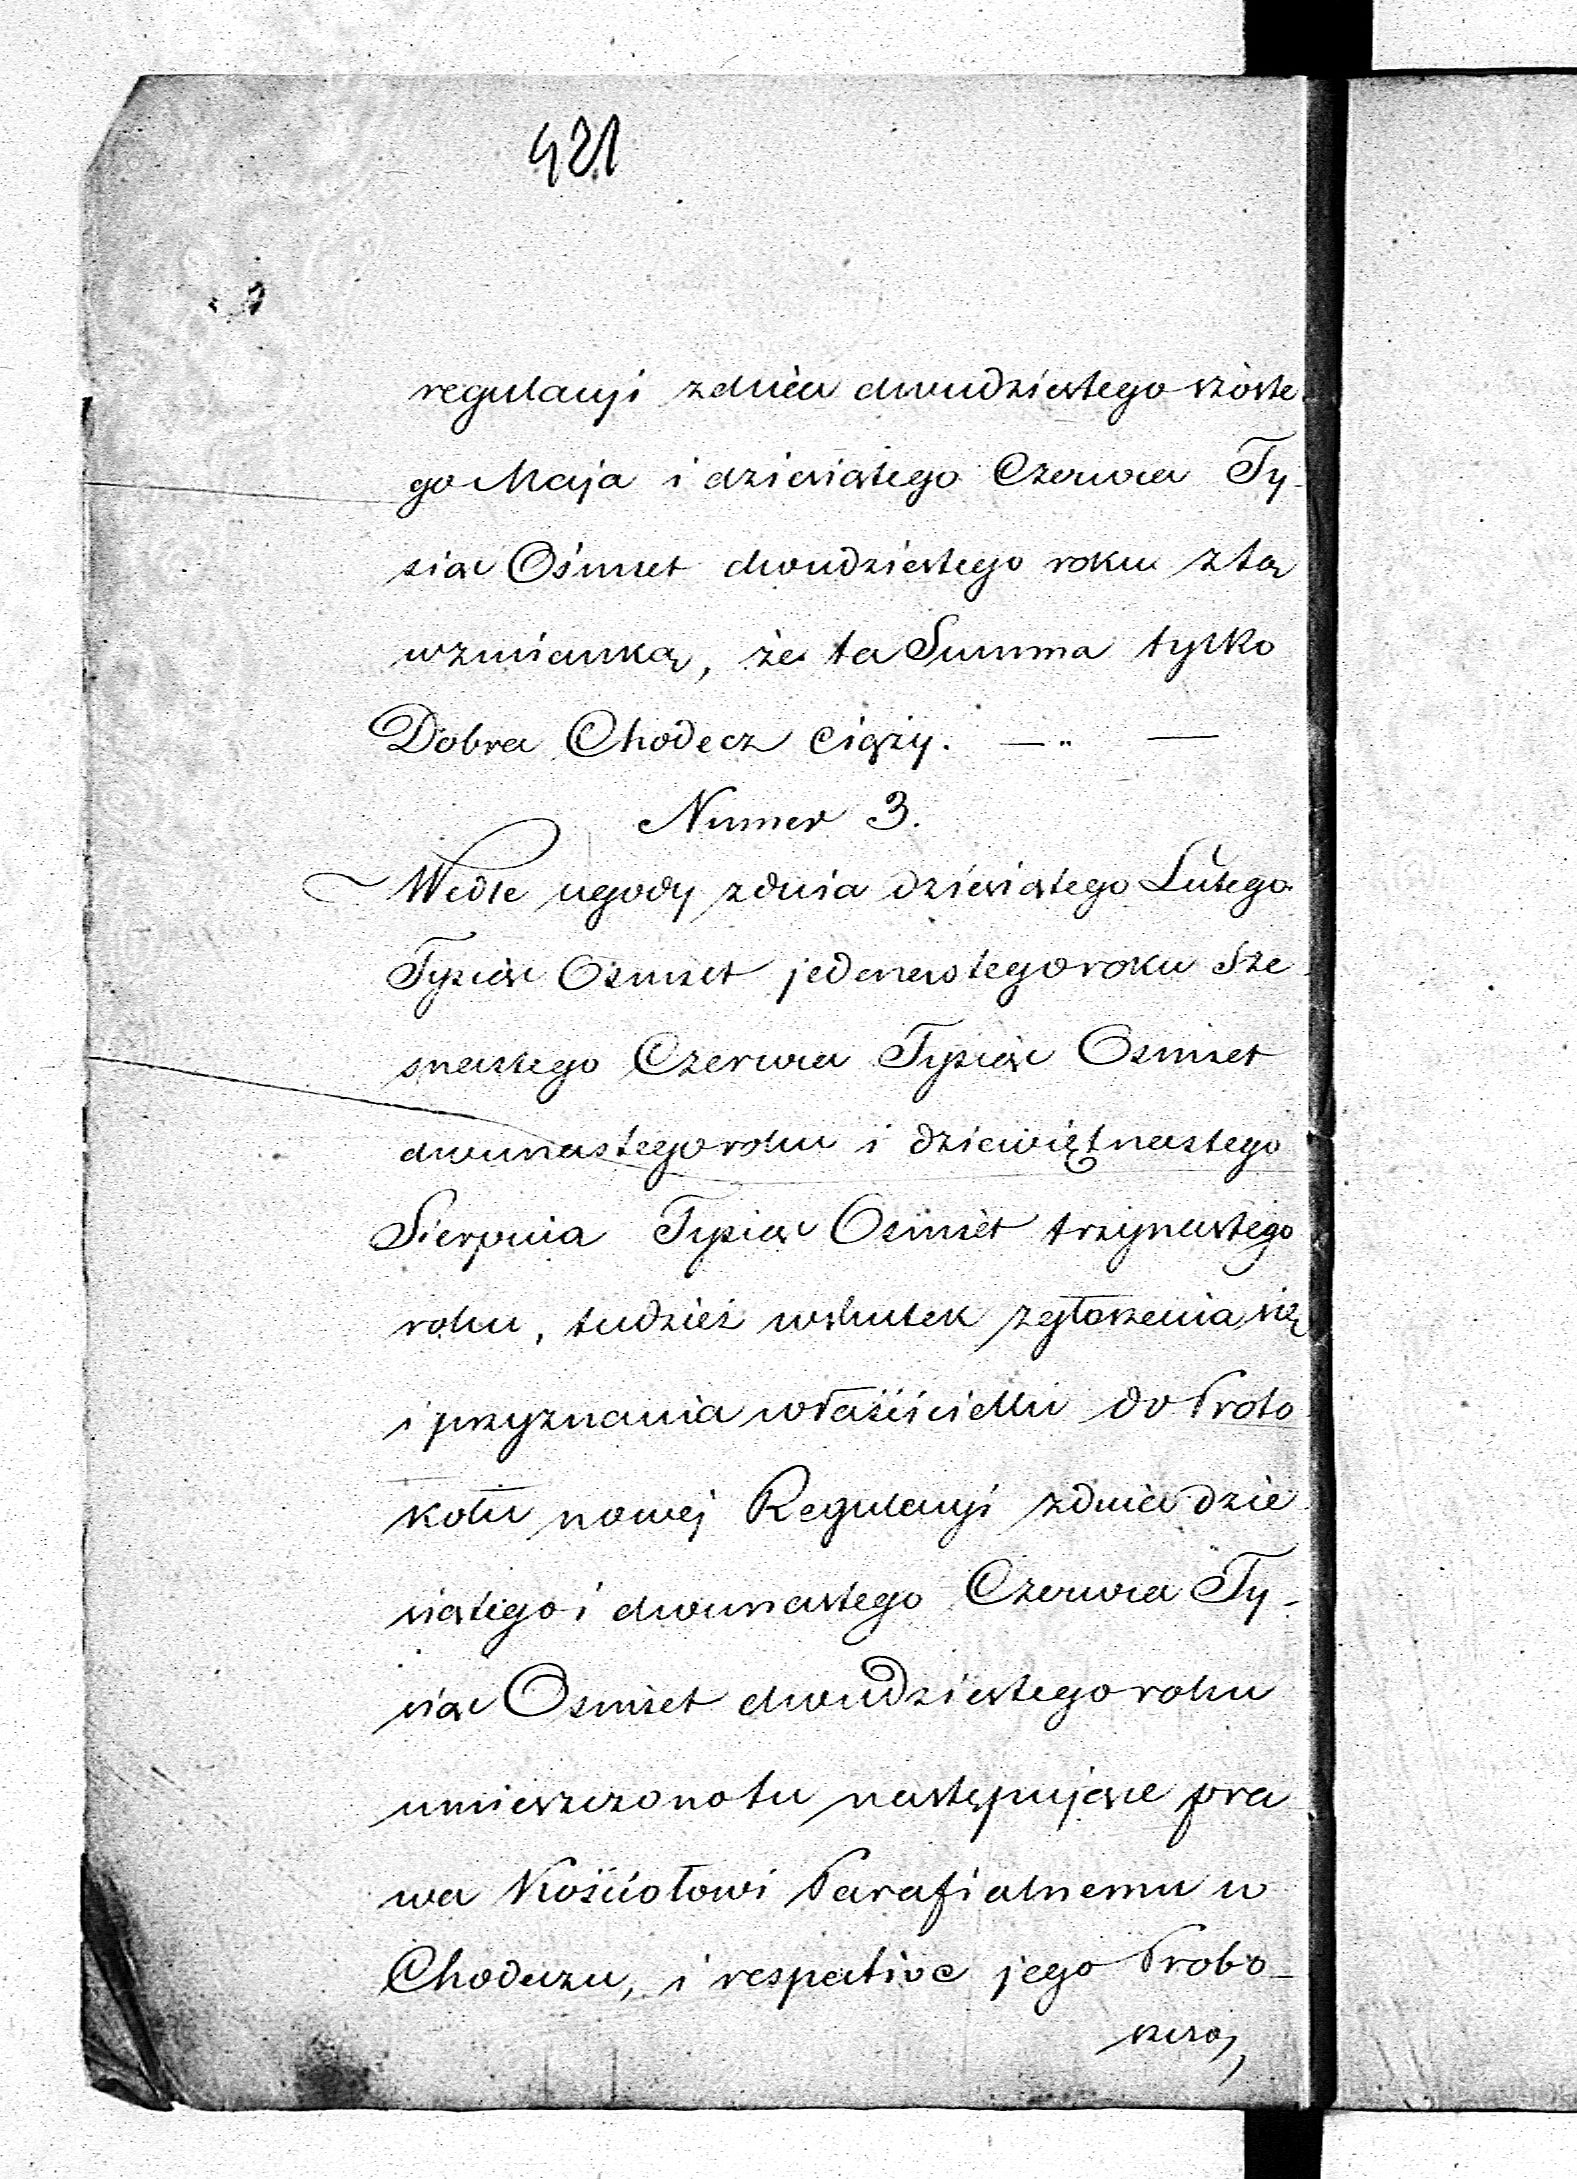 421
regulacyi z dnia dwudziestego szóste
go Maja i dziesiątego Czerwca Ty-
siąc Ośmset dwudziestego roku z tą
wzmianką, że ta Summa tylko
Dobra Chodecz ciąży. — „ —
Numer 3.
Wedle ugody z dnia dziesiątego Lutego
Tysiąc Ośmset jedenastego roku Sze
snastego Czerwca Tysiąc Osmset
dwunastego roku i dziewiętnastego
Sierpnia Tysiąc Osmset trzynastego
roku, tudzież wskutek zgłoszenia się
i przyznania właścicielki do Proto
kołu nowej Regulacyi z dnia dzie
siątego i dwunastego Czerwca Ty-
siąc Osmset dwudziestego roku
umieszczono tu następujące pra
wa Kościołowi Parafialnemu w
Chodczu, i respective jego Probo-